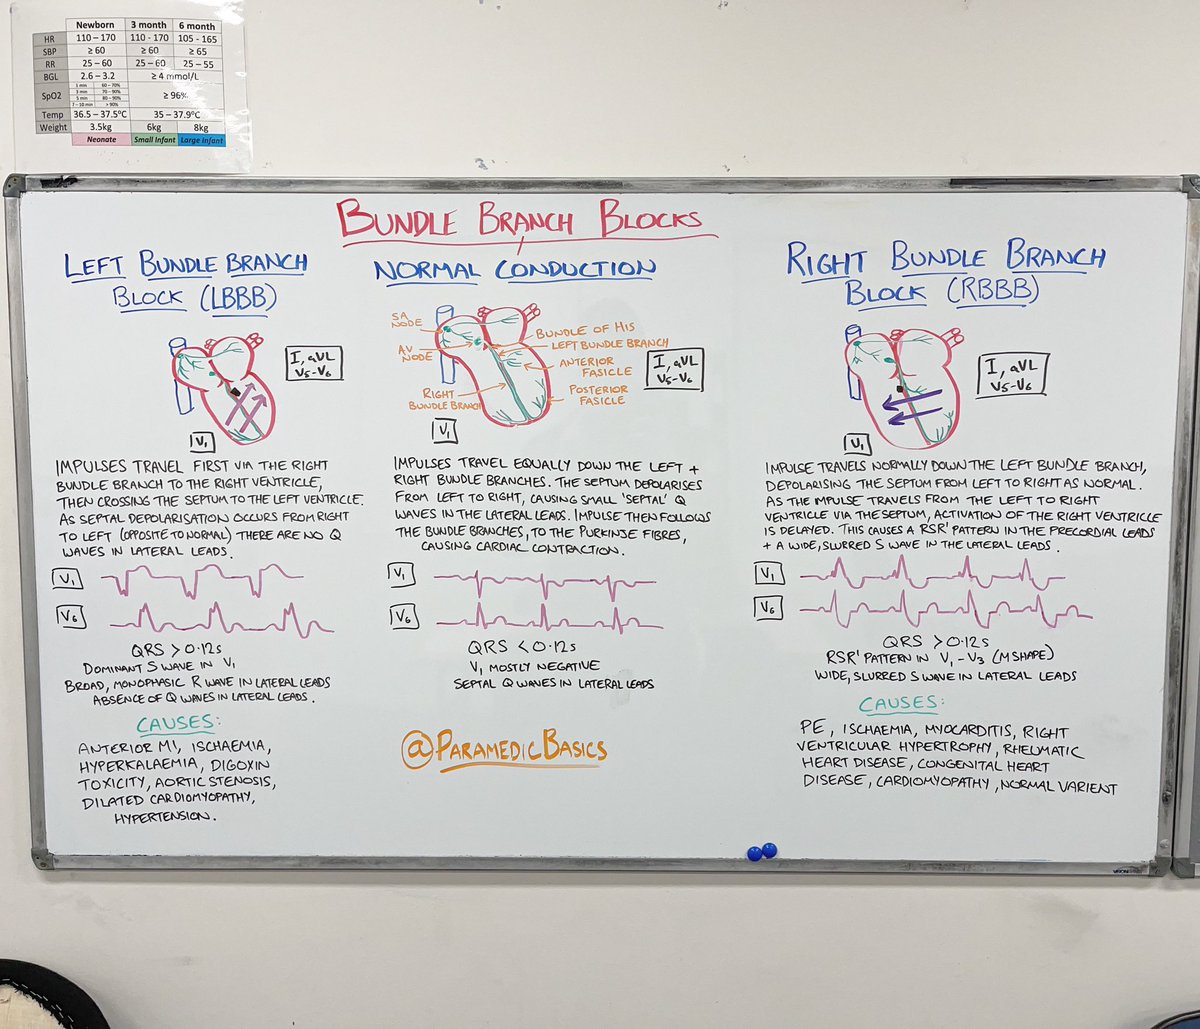 Newborn 3 month 6 month
HR 110 – 170 110 - 170 105 - 165
SBP ≥ 60 ≥ 60 ≥ 65
RR 25 – 60 25 – 60 25 – 55
BGL 2.6 – 3.2 ≥ 4 mmol/L
SpO2 ≥ 96%
1 min 60 – 70%
3 min 70 – 90%
5 min 80 – 90%
7 – 10 min > 90%
Temp 36.5 – 37.5°C 35 – 37.9°C
Weight 3.5kg 6kg 8kg
Neonate Small Infant Large Infant
BUNDLE BRANCH BLOCKS
LEFT BUNDLE BRANCH
BLOCK (LBBB)
I, aVL
V5-V6
V1
IMPULSES TRAVEL FIRST VIA THE RIGHT
BUNDLE BRANCH TO THE RIGHT VENTRICLE,
THEN CROSSING THE SEPTUM TO THE LEFT VENTRICLE.
AS SEPTAL DEPOLARISATION OCCURS FROM RIGHT
TO LEFT (OPPOSITE TO NORMAL) THERE ARE NO Q
WAVES IN LATERAL LEADS.
V1
V6
QRS > 0.12s
DOMINANT S WAVE IN V1
BROAD, MONOPHASIC R WAVE IN LATERAL LEADS
ABSENCE OF Q WAVES IN LATERAL LEADS.
CAUSES:
ANTERIOR MI, ISCHAEMIA,
HYPERKALAEMIA, DIGOXIN
TOXICITY, AORTIC STENOSIS,
DILATED CARDIOMYOPATHY,
HYPERTENSION.
NORMAL CONDUCTION
SA
NODE
AV
NODE
BUNDLE OF HIS
LEFT BUNDLE BRANCH
ANTERIOR
FASICLE
POSTERIOR
FASICLE
RIGHT
BUNDLE BRANCH
I, aVL
V5-V6
V1
IMPULSES TRAVEL EQUALLY DOWN THE LEFT +
RIGHT BUNDLE BRANCHES. THE SEPTUM DEPOLARISES
FROM LEFT TO RIGHT, CAUSING SMALL 'SEPTAL' Q
WAVES IN THE LATERAL LEADS. IMPULSE THEN FOLLOWS
THE BUNDLE BRANCHES, TO THE PURKINJE FIBRES,
CAUSING CARDIAC CONTRACTION.
V1
V6
QRS < 0.12s
V1 MOSTLY NEGATIVE
SEPTAL Q WAVES IN LATERAL LEADS
@PARAMEDICBASICS
RIGHT BUNDLE BRANCH
BLOCK (RBBB)
I, aVL
V5-V6
V1
IMPULSE TRAVELS NORMALLY DOWN THE LEFT BUNDLE BRANCH,
DEPOLARISING THE SEPTUM FROM LEFT TO RIGHT AS NORMAL.
AS THE IMPULSE TRAVELS FROM THE LEFT TO RIGHT
VENTRICLE VIA THE SEPTUM, ACTIVATION OF THE RIGHT VENTRICLE
IS DELAYED. THIS CAUSES A RSR' PATTERN IN THE PRECORDIAL LEADS
+ A WIDE, SLURRED S WAVE IN THE LATERAL LEADS.
V1
V6
QRS > 0.12s
RSR' PATTERN IN V1-V3 (M SHAPE)
WIDE, SLURRED S WAVE IN LATERAL LEADS
CAUSES:
PE, ISCHAEMIA, MYOCARDITIS, RIGHT
VENTRICULAR HYPERTROPHY, RHEUMATIC
HEART DISEASE, CONGENITAL HEART
DISEASE, CARDIOMYOPATHY, NORMAL VARIENT